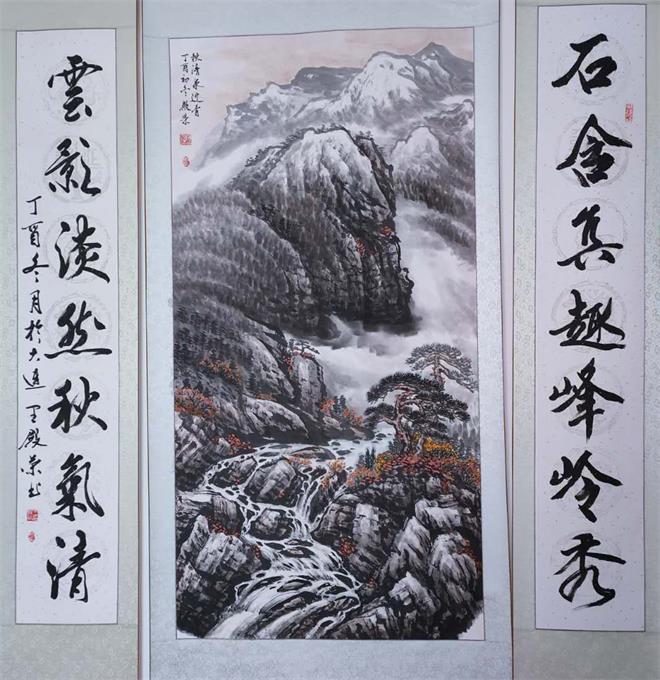 石含真趣峰岭秀
秋清泉音
丁酉初冬殿荣
雲影淡然秋氣清
丁酉冬月於大连王殿荣书